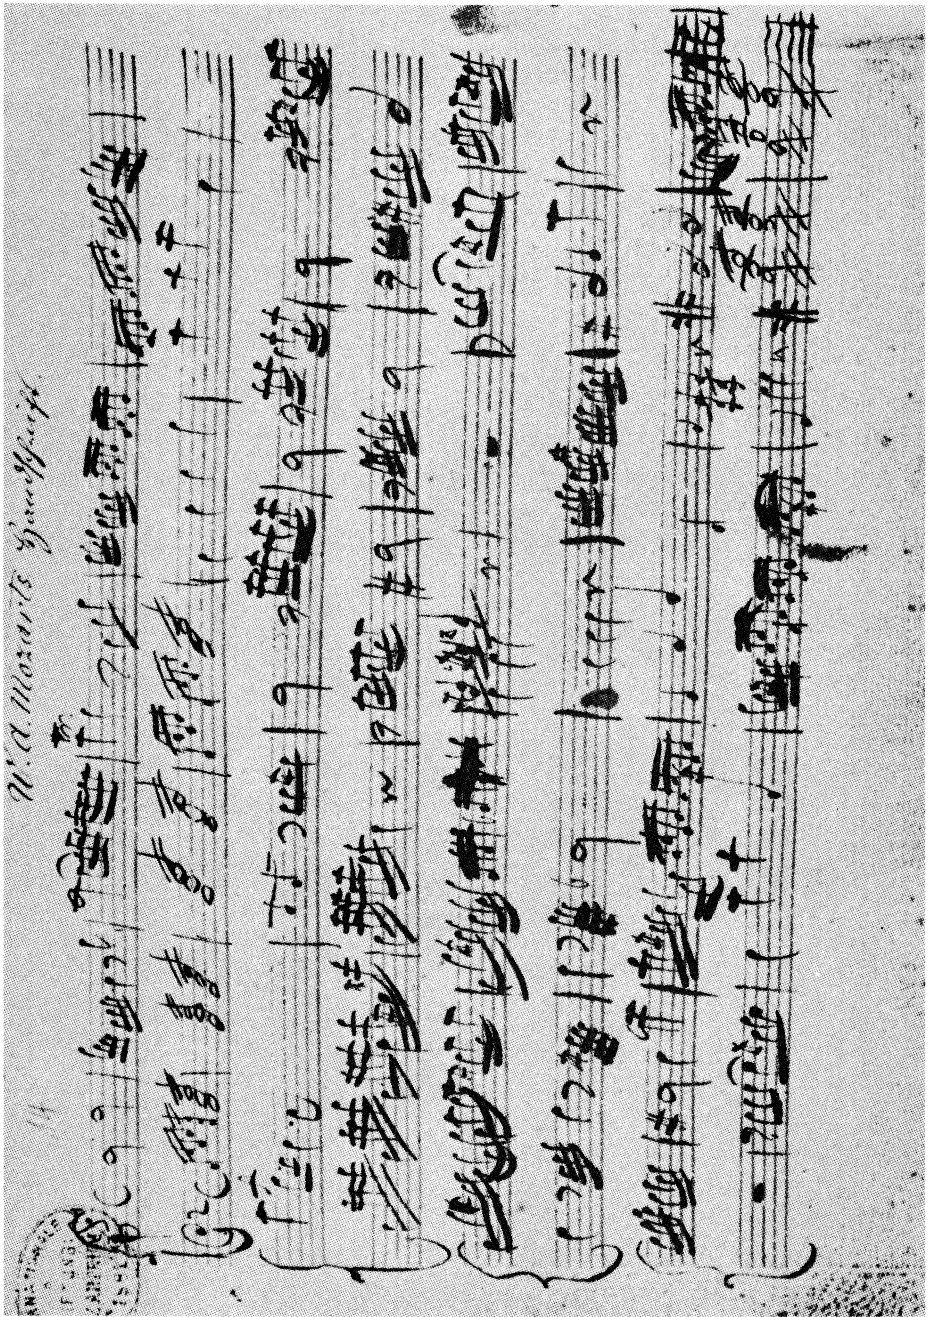 W. A. Mozarts Handschrift.